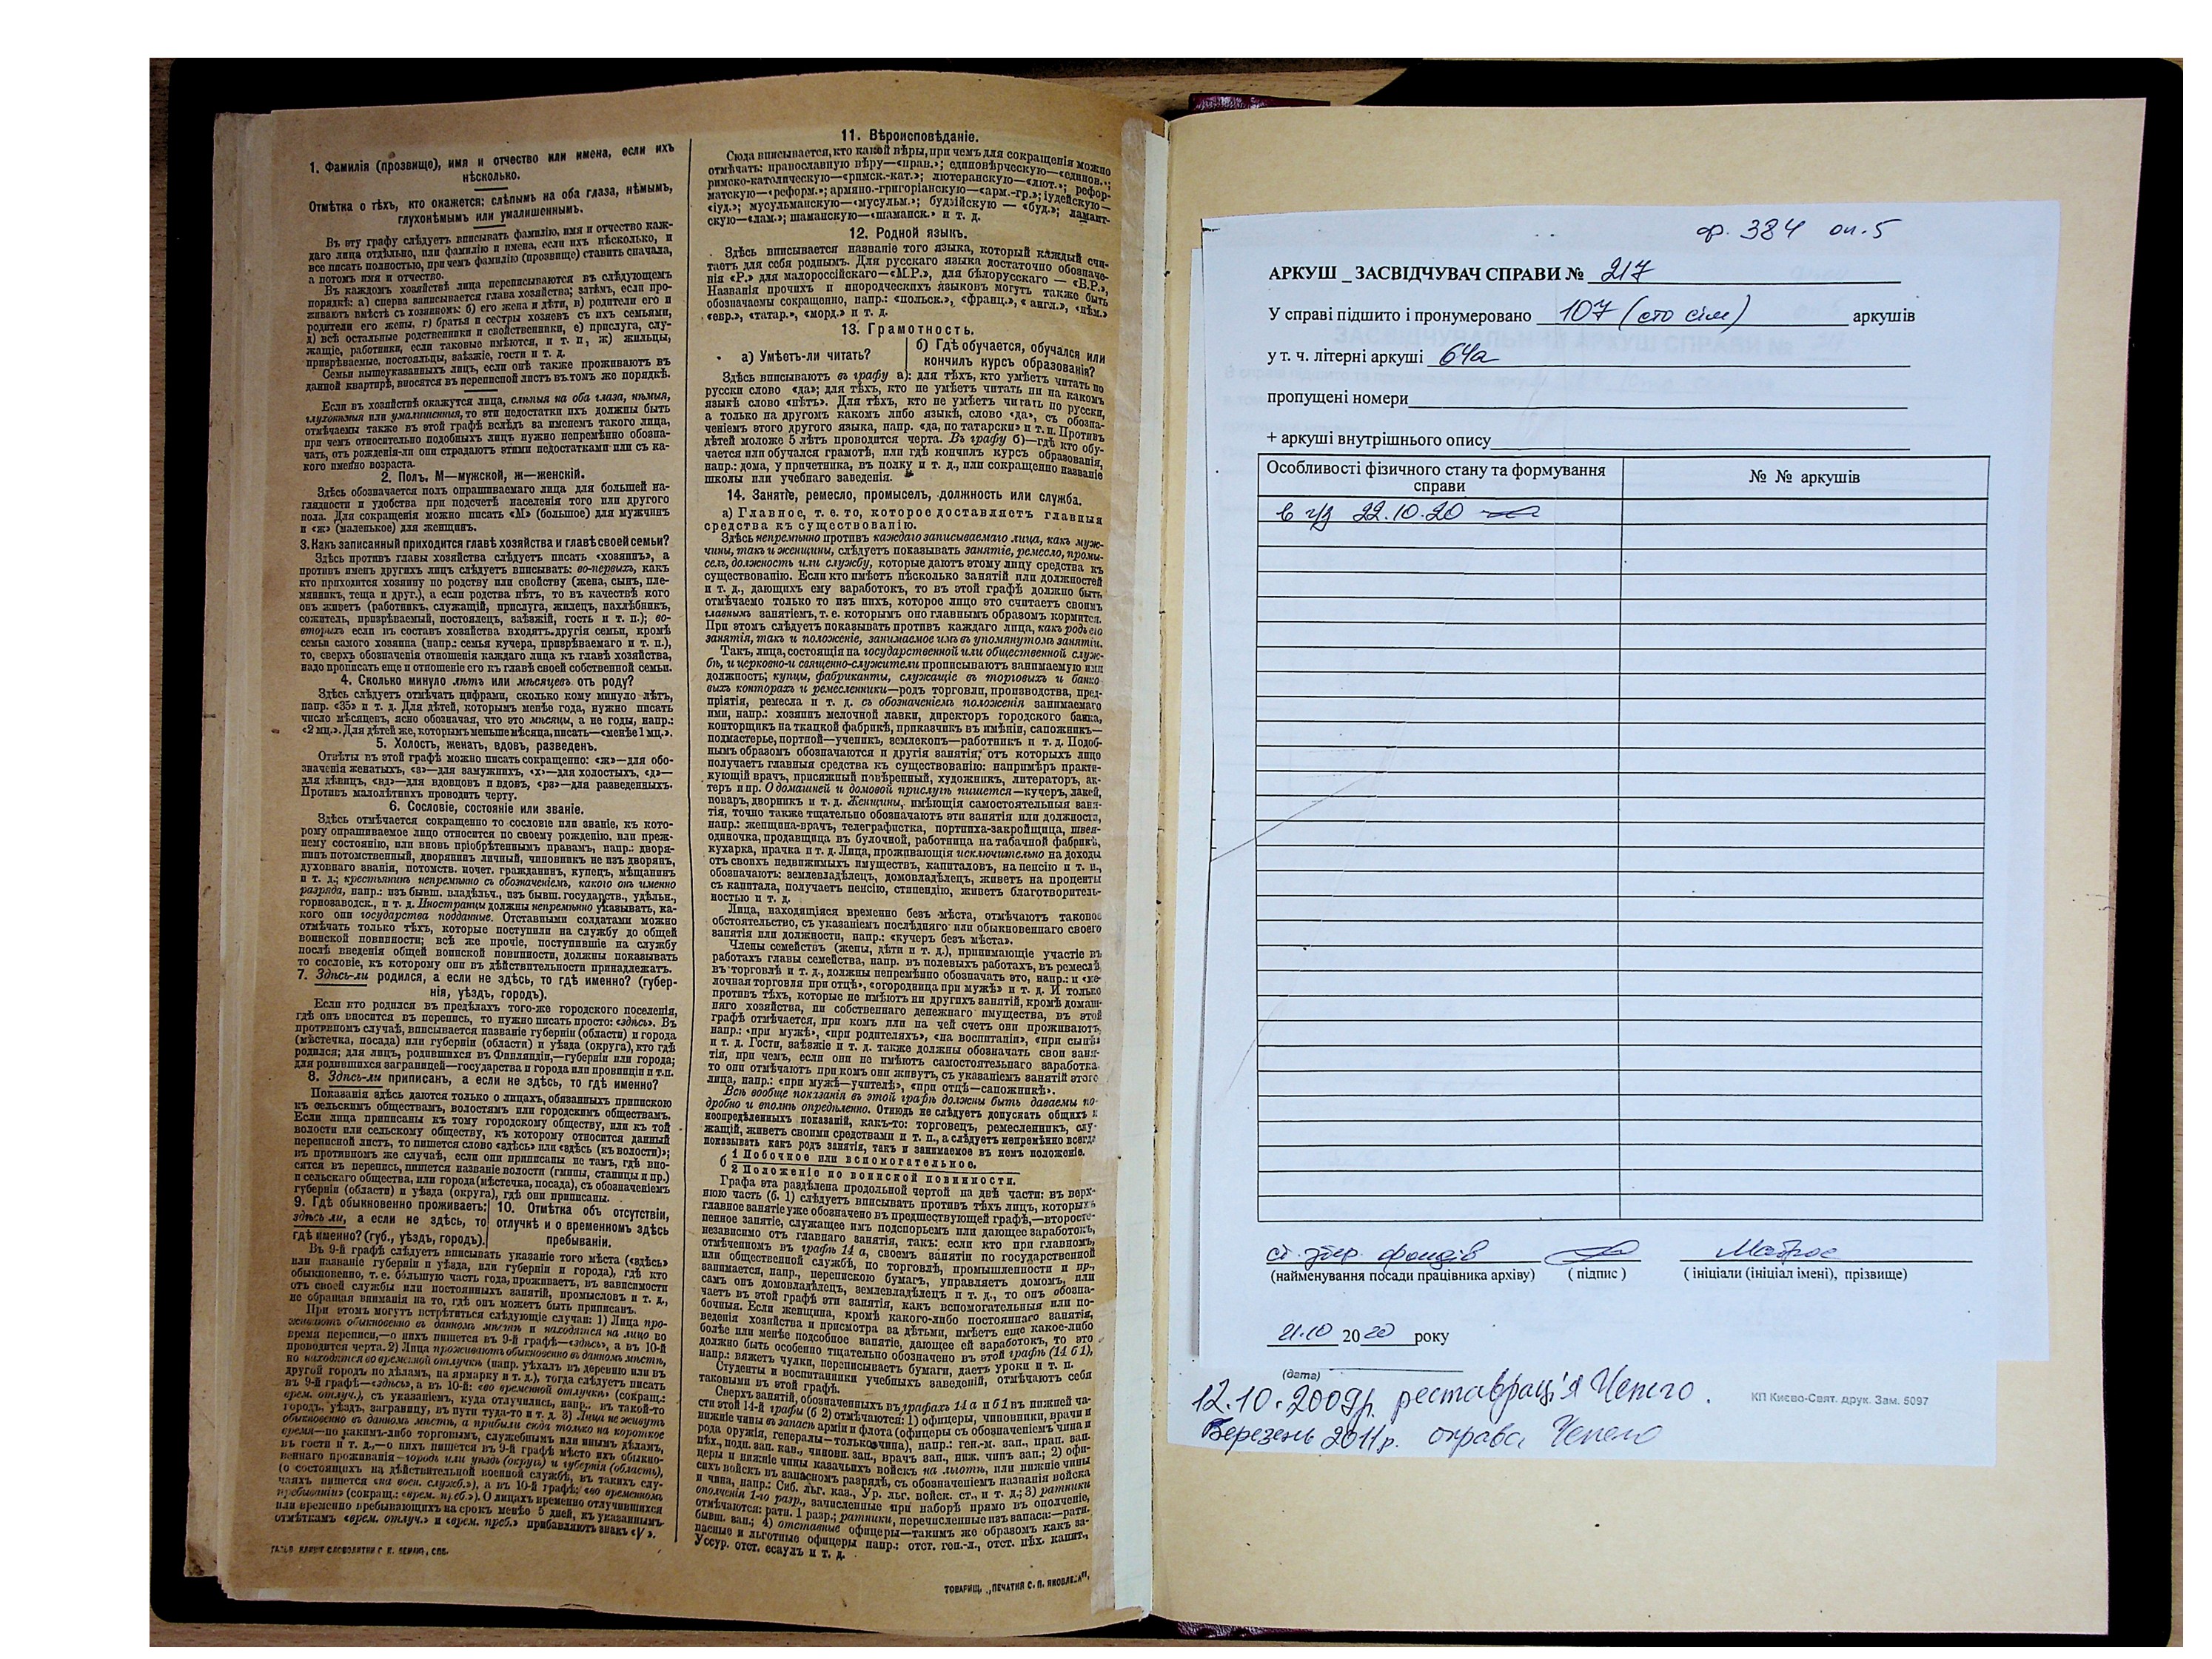 1. Фамилія (прозвище), имя и отчество или имена, если ихъ
нѣсколько.
Отмѣтка о тѣхъ, кто окажется: слѣпымъ на оба глаза, нѣмымъ,
глухонѣмымъ или умалишеннымъ.
Въ эту графу слѣдуетъ вписывать фамилію, имя и отчество каж-
даго лица отдѣльно, или фамилію и имена, если ихъ нѣсколько, и
все писать полностью, при чемъ фамилію (прозвище) ставить сначала,
а потомъ имя и отчество.
Въ каждомъ хозяйствѣ лица переписываются въ слѣдующемъ
порядкѣ: а) сперва записывается глава хозяйства; затѣмъ, если про-
живаютъ вмѣстѣ съ хозяиномъ: б) его жена и дѣти, в) родители его и
родители его жены, г) братья и сестры хозяевъ съ ихъ семьями,
д) всѣ остальные родственники и свойственники, е) прислуга, слу-
жащіе, работники, если таковые имѣются, и т. п, ж) жильцы,
призрѣваемые, постояльцы, заѣзжіе, гости и т. д.
Семьи вышеуказанныхъ лицъ, если онѣ также проживаютъ въ
данной квартирѣ, вносятся въ переписной листъ въ томъ же порядкѣ.
Если въ хозяйствѣ окажутся лица, слѣпыя на оба глаза, нѣмыя,
глухонѣмыя или умалишенныя, то эти недостатки ихъ должны быть
отмѣчаемы также въ этой графѣ вслѣдъ за именемъ такого лица,
при чемъ относительно подобныхъ лицъ нужно непремѣнно обозна-
чать, отъ рожденія-ли они страдаютъ этими недостатками или съ ка-
кого именно возраста.
2. Полъ. М—мужской, ж—женскій.
Здѣсь обозначается полъ опрашиваемаго лица для большей на-
глядности и удобства при подсчетѣ населенія того или другого
пола. Для сокращенія можно писать «М» (большое) для мужчинъ
и «ж» (маленькое) для женщинъ.
3. Какъ записанный приходится главѣ хозяйства и главѣ своей семьи?
Здѣсь противъ главы хозяйства слѣдуетъ писать «хозяинъ», а
противъ именъ другихъ лицъ слѣдуетъ вписывать: во-первыхъ, какъ
кто приходится хозяину по родству или свойству (жена, сынъ, пле-
мянникъ, теща и друг.), а если родства нѣтъ, то въ качествѣ кого
онъ живетъ (работникъ, служащій, прислуга, жилецъ, нахлѣбникъ,
сожитель, призрѣваемый, постоялецъ, заѣзжій, гость и т. п.); во-
вторыхъ если въ составъ хозяйства входятъ другія семьи, кромѣ
семьи самого хозяина (напр.: семья кучера, призрѣваемаго и т. п.),
то, сверхъ обозначенія отношенія каждаго лица къ главѣ хозяйства,
надо прописать еще и отношеніе его къ главѣ своей собственной семьи.
4. Сколько минуло лѣтъ или мѣсяцевъ отъ роду?
Здѣсь слѣдуетъ отмѣчать цифрами, сколько кому минуло лѣтъ,
напр. «35» и т. д. Для дѣтей, которымъ менѣе года, нужно писать
число мѣсяцевъ, ясно обозначая, что это мѣсяцы, а не годы, напр.:
«2 мц.». Для дѣтей же, которымъ меньше мѣсяца, писать—«менѣе 1 мц.».
5. Холостъ, женатъ, вдовъ, разведенъ.
Отвѣты въ этой графѣ можно писать сокращенно: «ж»—для обо-
значенія женатыхъ, «з»—для замужнихъ, «х»—для холостыхъ, «д»—
для дѣвицъ, «вд»—для вдовцовъ и вдовъ, «рз»—для разведенныхъ.
Противъ малолѣтнихъ проводить черту.
6. Сословіе, состояніе или званіе.
Здѣсь отмѣчается сокращенно то сословіе или званіе, къ кото-
рому опрашиваемое лицо относится по своему рожденію, или преж-
нему состоянію, или вновь пріобрѣтеннымъ правамъ, напр.: дворя-
нинъ потомственный, дворянинъ личный, чиновникъ не изъ дворянъ,
духовнаго званія, потомств. почет. гражданинъ, купецъ, мѣщанинъ
и т. д.; крестьянинъ непремѣнно съ обозначеніемъ, какого онъ именно
разряда, напр.: изъ бывш. владѣльч., изъ бывш. государств., удѣльн.,
горнозаводск., и т. д. Иностранцы должны непремѣнно указывать, ка-
кого они государства подданные. Отставными солдатами можно
отмѣчать только тѣхъ, которые поступили на службу до общей
воинской повинности; всѣ же прочіе, поступившіе на службу
послѣ введенія общей воинской повинности, должны показывать
то сословіе, къ которому они въ дѣйствительности принадлежатъ.
7. Здѣсь-ли родился, а если не здѣсь, то гдѣ именно? (губер-
нія, уѣздъ, городъ).
Если кто родился въ предѣлахъ того-же городского поселенія,
гдѣ онъ вносится въ перепись, то нужно писать просто: «здѣсь». Въ
противномъ случаѣ, вписывается названіе губерніи (области) и города
(мѣстечка, посада) или губерніи (области) и уѣзда (округа), кто гдѣ
родился; для лицъ, родившихся въ Финляндіи,—губерніи или города;
для родившихся заграницей—государства и города или провинціи и т.п.
8. Здѣсь-ли приписанъ, а если не здѣсь, то гдѣ именно?
Показанія здѣсь даются только о лицахъ, обязанныхъ припискою
къ сельскимъ обществамъ, волостямъ или городскимъ обществамъ.
Если лица приписаны къ тому городскому обществу, или къ той
волости или сельскому обществу, къ которому относится данный
переписной листъ, то пишется слово «здѣсь» или «здѣсь (къ волости)»;
въ противномъ же случаѣ, если они приписаны не тамъ, гдѣ вно-
сятся въ перепись, пишется названіе волости (гмины, станицы и пр.)
и сельскаго общества, или города (мѣстечка, посада), съ обозначеніемъ
губерніи (области) и уѣзда (округа), гдѣ они приписаны.
9. Гдѣ обыкновенно проживаетъ: здѣсь ли, а если не здѣсь, то гдѣ именно? (губ., уѣздъ, городъ).
10. Отмѣтка объ отсутствіи, отлучкѣ и о временномъ здѣсь пребываніи.
Въ 9-й графѣ слѣдуетъ вписывать указаніе того мѣста («здѣсь»
или названіе губерніи и уѣзда, или губерніи и города), гдѣ кто
обыкновенно, т. е. бо́льшую часть года, проживаетъ, въ зависимости
отъ своей службы или постоянныхъ занятій, промысловъ и т. д.,
не обращая вниманія на то, гдѣ онъ можетъ быть приписанъ.
При этомъ могутъ встрѣтиться слѣдующіе случаи: 1) Лица про-
живаютъ обыкновенно въ данномъ мѣстѣ и находятся на лицо во
время переписи,—о нихъ пишется въ 9-й графѣ—«здѣсь», а въ 10-й
проводится черта. 2) Лица проживаютъ обыкновенно въ данномъ мѣстѣ,
но находятся во временной отлучкѣ (напр. уѣхалъ въ деревню или въ
другой городъ по дѣламъ, на ярмарку и т. д.), тогда слѣдуетъ писать
въ 9-й графѣ—«здѣсь», а въ 10-й: «во временной отлучкѣ» (сокращ.:
врем. отлуч.), съ указаніемъ, куда отлучились, напр., въ такой-то
городъ, уѣздъ, заграницу, въ пути туда-то и т. д. 3) Лица не живутъ
обыкновенно въ данномъ мѣстѣ, а прибыли сюда только на короткое
время—по какимъ-либо торговымъ, служебнымъ или инымъ дѣламъ,
въ гости и т. д.,—о нихъ пишется въ 9-й графѣ мѣсто ихъ обыкно-
веннаго проживанія—городъ или уѣздъ (округъ) и губернія (область),
(о состоящихъ на дѣйствительной военной службѣ, въ такихъ слу-
чаяхъ пишется «на воен. служб.»), а въ 10-й графѣ: «во временномъ
пребываніи» (сокращ.: «врем. преб.»). О лицахъ временно отлучившихся
или временно пребывающихъ на срокъ менѣе 5 дней, къ указаннымъ
отмѣткамъ «врем. отлуч.» и «врем. преб.» прибавляютъ знакъ «V».
11. Вѣроисповѣданіе.
Сюда вписывается, кто какой вѣры, при чемъ для сокращенія можно
отмѣчать: православную вѣру—«прав.»; единовѣрческую—«единов.»;
римско-католическую—«римск.-кат.»; лютеранскую—«лют.»; рефор-
матскую—«реформ.»; армяно.-григоріанскую—«арм.-гр.»; іудейскую—
«іуд.»; мусульманскую—«мусульм.»; буддійскую — «буд.»; ламаит-
скую—«лам.»; шаманскую—«шаманск.» и т. д.
12. Родной языкъ.
Здѣсь вписывается названіе того языка, который каждый счи-
таетъ для себя роднымъ. Для русскаго языка достаточно обозначе-
нія «Р.» для малороссійскаго—«М.Р.», для бѣлорусскаго — «Б.Р.»,
Названія прочихъ и инородческихъ языковъ могутъ также быть
обозначаемы сокращенно, напр.: «польск.», «франц.», «англ.», «нѣм.»
«евр.», «татар.», «морд.» и т. д.
13. Грамотность.
а) Умѣетъ-ли читать?
б) Гдѣ обучается, обучался или
кончилъ курсъ образованія?
Здѣсь вписываютъ въ графу а): для тѣхъ, кто умѣетъ читать по
русски слово «да»; для тѣхъ, кто не умѣетъ читать ни на какомъ
языкѣ слово «нѣтъ». Для тѣхъ, кто не умѣетъ читать по русски,
а только на другомъ какомъ либо языкѣ, слово «да», съ обозна-
ченіемъ этого другого языка, напр. «да, по татарски» и т. п. Противъ
дѣтей моложе 5 лѣтъ проводится черта. Въ графу б)—гдѣ кто обу-
чается или обучался грамотѣ, или гдѣ кончилъ курсъ образованія,
напр.: дома, у причетника, въ полку и т. д., или сокращенно названіе
школы или учебнаго заведенія.
14. Занятіе, ремесло, промыселъ, должность или служба.
а) Главное, т. е. то, которое доставляетъ главныя
средства къ существованію.
Здѣсь непремѣнно противъ каждаго записываемаго лица, какъ муж-
чины, такъ и женщины, слѣдуетъ показывать занятіе, ремесло, промы-
селъ, должность или службу, которые даютъ этому лицу средства къ
существованію. Если кто имѣетъ нѣсколько занятій или должностей
и т. д., дающихъ ему заработокъ, то въ этой графѣ должно быть
отмѣчаемо только то изъ нихъ, которое лицо это считаетъ своимъ
главнымъ занятіемъ, т. е. которымъ оно главнымъ образомъ кормится.
При этомъ слѣдуетъ показывать противъ каждаго лица, какъ родъ его
занятія, такъ и положеніе, занимаемое имъ въ упомянутомъ занятіи.
Такъ, лица, состоящія на государственной или общественной служ-
бѣ, и церковно-и священно-служители прописываютъ занимаемую ими
должность; купцы, фабриканты, служащіе въ торговыхъ и банко-
выхъ конторахъ и ремесленники—родъ торговли, производства, пред-
пріятія, ремесла и т. д. съ обозначеніемъ положенія занимаемаго
ими, напр.: хозяинъ мелочной лавки, директоръ городского банка,
конторщикъ на ткацкой фабрикѣ, приказчикъ въ имѣніи, сапожникъ—
подмастерье, портной—ученикъ, землекопъ—работникъ и т. д. Подоб-
нымъ образомъ обозначаются и другія занятія, отъ которыхъ лицо
получаетъ главныя средства къ существованію: напримѣръ практи-
кующій врачъ, присяжный повѣренный, художникъ, литераторъ, ак-
теръ и пр. О домашней и домовой прислугѣ пишется—кучеръ, лакей,
поваръ, дворникъ и т. д. Женщины, имѣющія самостоятельныя заня-
тія, точно также тщательно обозначаютъ эти занятія или должности,
напр.: женщина-врачъ, телеграфистка, портниха-закройщица, швея-
одиночка, продавщица въ булочной, работница на табачной фабрикѣ,
кухарка, прачка и т. д. Лица, проживающія исключительно на доходы
отъ своихъ недвижимыхъ имуществъ, капиталовъ, на пенсію и т. п.,
обозначаютъ: землевладѣлецъ, домовладѣлецъ, живетъ на проценты
съ капитала, получаетъ пенсію, стипендію, живетъ благотворитель-
ностью и т. д.
Лица, находящіяся временно безъ мѣста, отмѣчаютъ таковое
обстоятельство, съ указаніемъ послѣдняго или обыкновеннаго своего
занятія или должности, напр.: «кучеръ безъ мѣста».
Члены семействъ (жены, дѣти и т. д.), принимающіе участіе въ
работахъ главы семейства, напр. въ полевыхъ работахъ, въ ремеслѣ,
въ торговлѣ и т. д., должны непремѣнно обозначать это, напр.: и «ме-
лочная торговля при отцѣ», «огородница при мужѣ» и т. д. И только
противъ тѣхъ, которые не имѣютъ ни другихъ занятій, кромѣ домаш-
няго хозяйства, ни собственнаго денежнаго имущества, въ этой
графѣ отмѣчается, при комъ или на чей счетъ они проживаютъ,
напр.: «при мужѣ», «при родителяхъ», «на воспитаніи», «при сынѣ»
и т. д. Гости, заѣзжіе и т. д. также должны обозначать свои заня-
тія, при чемъ, если они не имѣютъ самостоятельнаго заработка
то они отмѣчаютъ при комъ они живутъ, съ указаніемъ занятій этого
лица, напр.: «при мужѣ—учителѣ», «при отцѣ—сапожникѣ».
Всѣ вообще показанія въ этой графѣ должны быть даваемы по-
дробно и вполнѣ опредѣленно. Отнюдь не слѣдуетъ допускать общихъ и
неопредѣленныхъ показаній, какъ-то: торговецъ, ремесленникъ, слу-
жащій, живетъ своими средствами и т. п., а слѣдуетъ непремѣнно всегда
показывать какъ родъ занятія, такъ и занимаемое въ немъ положеніе.
б 1 Побочное или вспомогательное.
2 Положеніе по воинской повинности.
Графа эта раздѣлена продольной чертой на двѣ части: въ верх-
нюю часть (б. 1) слѣдуетъ вписывать противъ тѣхъ лицъ, которыхъ
главное занятіе уже обозначено въ предшествующей графѣ,—второсте-
пенное занятіе, служащее имъ подспорьемъ или дающее заработокъ,
независимо отъ главнаго занятія, такъ: если кто при главномъ,
отмѣченномъ въ графѣ 14 а, своемъ занятіи по государственной
или общественной службѣ, по торговлѣ, промышленности и пр.,
занимается, напр., перепискою бумагъ, управляетъ домомъ, или
самъ онъ домовладѣлецъ, землевладѣлецъ и т. д., то онъ обозна-
чаетъ въ этой графѣ эти занятія, какъ вспомогательныя или по-
бочныя. Если женщина, кромѣ какого-либо постояннаго занятія,
веденія хозяйства и присмотра за дѣтьми, имѣетъ еще какое-либо
болѣе или менѣе подсобное занятіе, дающее ей заработокъ, то это
должно быть особенно тщательно обозначено въ этой графѣ (14 б 1),
напр.: вяжетъ чулки, переписываетъ бумаги, даетъ уроки и т. п.
Студенты и воспитанники учебныхъ заведеній, отмѣчаютъ себя
таковыми въ этой графѣ.
Сверхъ занятій, обозначенныхъ въ графахъ 14 а и б 1 въ нижней ча-
сти этой 14-й графы (б 2) отмѣчаются: 1) офицеры, чиновники, врачи и
нижніе чины въ запасѣ арміи и флота (офицеры съ обозначеніемъ чина и
рода оружія, генералы—только чина), напр.: ген.-м. зап., прап. зап.
пѣх., подп. зап. кав., чиновн. зап., врачъ зап., ниж. чинъ зап.; 2) офи-
церы и нижніе чины казачьихъ войскъ на льготѣ, или нижніе чины
сихъ войскъ въ запасномъ разрядѣ, съ обозначеніемъ названія войска
и чина, напр.: Сиб. льг. каз., Ур. льг. войск. ст., и т. д.; 3) ратники
ополченія 1-го разр., зачисленные при наборѣ прямо въ ополченіе,
отмѣчаются: ратн. 1 разр.; ратники, перечисленные изъ запаса:—ратн.
бывш. зап.; 4) отставные офицеры—такимъ же образомъ какъ за-
пасные и льготные офицеры напр.: отст. ген.-л., отст. пѣх. капит.,
Уссур. отст. есаулъ и т. д.
ТОВАРИЩ. „ПЕЧАТНЯ С. П. ЯКОВЛЕВА",
ф. 384 оп. 5
АРКУШ _ ЗАСВІДЧУВАЧ СПРАВИ № 217
У справі підшито і пронумеровано 107 (сто сім) аркушів
у т. ч. літерні аркуші 64а
пропущені номери
+ аркуші внутрішнього опису
Особливості фізичного стану та формування справи
№ № аркушів
22.10.20
ст. збер. фондів
(найменування посади працівника архіву) ( підпис ) ( ініціали (ініціал імені), прізвище)
21.10 2020 року
(дата)
12.10.2009р. реставрація Чепего.
Березень 2011р. оправа Чепего
КП Києво-Свят. друк. Зам. 5097